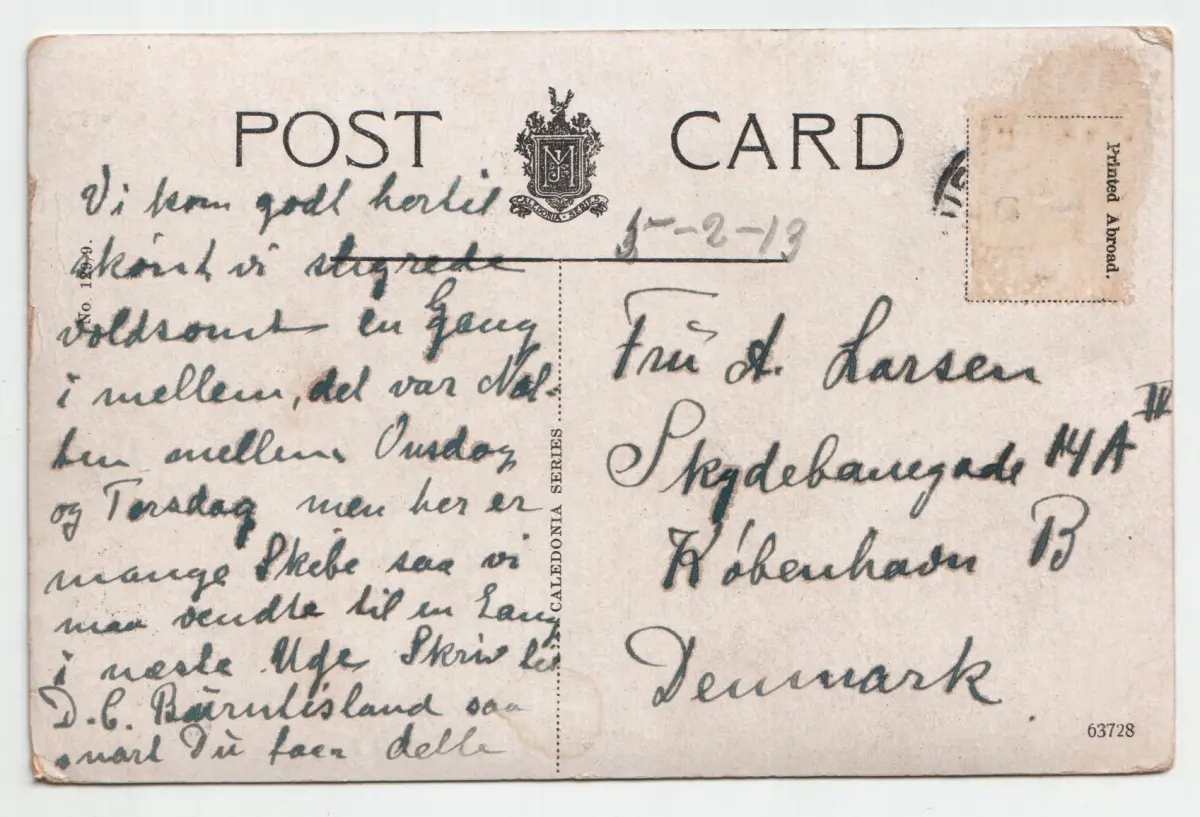 POST CARD
NMJS
CALEDONIA SERIES
Printed Abroad.
5-2-19
No. 1
Vi kom godt hertil
skönt vi slugrede
voldsomt en Gang
i mellem, det var Nat-
ten mellem Onsdag
og Torsdag men her er
mange Skibe saa vi
maa vendte til en Gang
i næste Uge Skriv til
D.C. Burntisland saa
snart Du faar dette
CALEDONIA SERIES
Fru A. Larsen
Skydebanegade 14A IV
København B
Denmark
63728